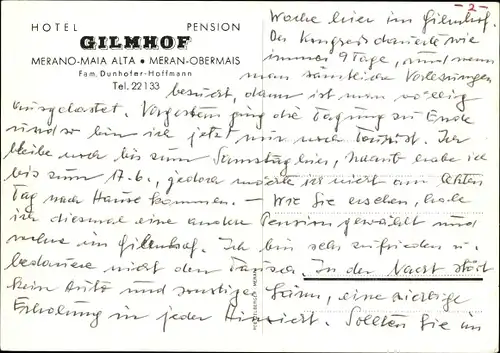 - 2 -
HOTEL PENSION
GILMHOF
MERANO-MAIA ALTA • MERAN-OBERMAIS
Fam. Dunhofer-Hoffmann
Tel. 22133
Woche hier im Gilmhof.
Der Kongress dauerte wie
immer 9 Tage, und wenn
man sämtliche Vorlesungen
besucht, dann ist man völlig
ausgelastet. Vorgestern ging die Tagung zu Ende
und so bin ich jetzt nur noch Tourist. Ich
bleibe noch bis zum Samstag hier, Urlaub habe ich
bis zum 17.6., jedoch möchte ich nicht am letzten
Tag nach Hause kommen. – Wie Sie ersehen, habe
ich diesmal eine andere Pension gewählt und
wohne im Gilmhof. Ich bin sehr zufrieden u.
bedauere nicht den Tausch. In der Nacht stört
kein Auto und sonstiger Lärm, eine richtige
Erholung in jeder Hinsicht. Sollten Sie im